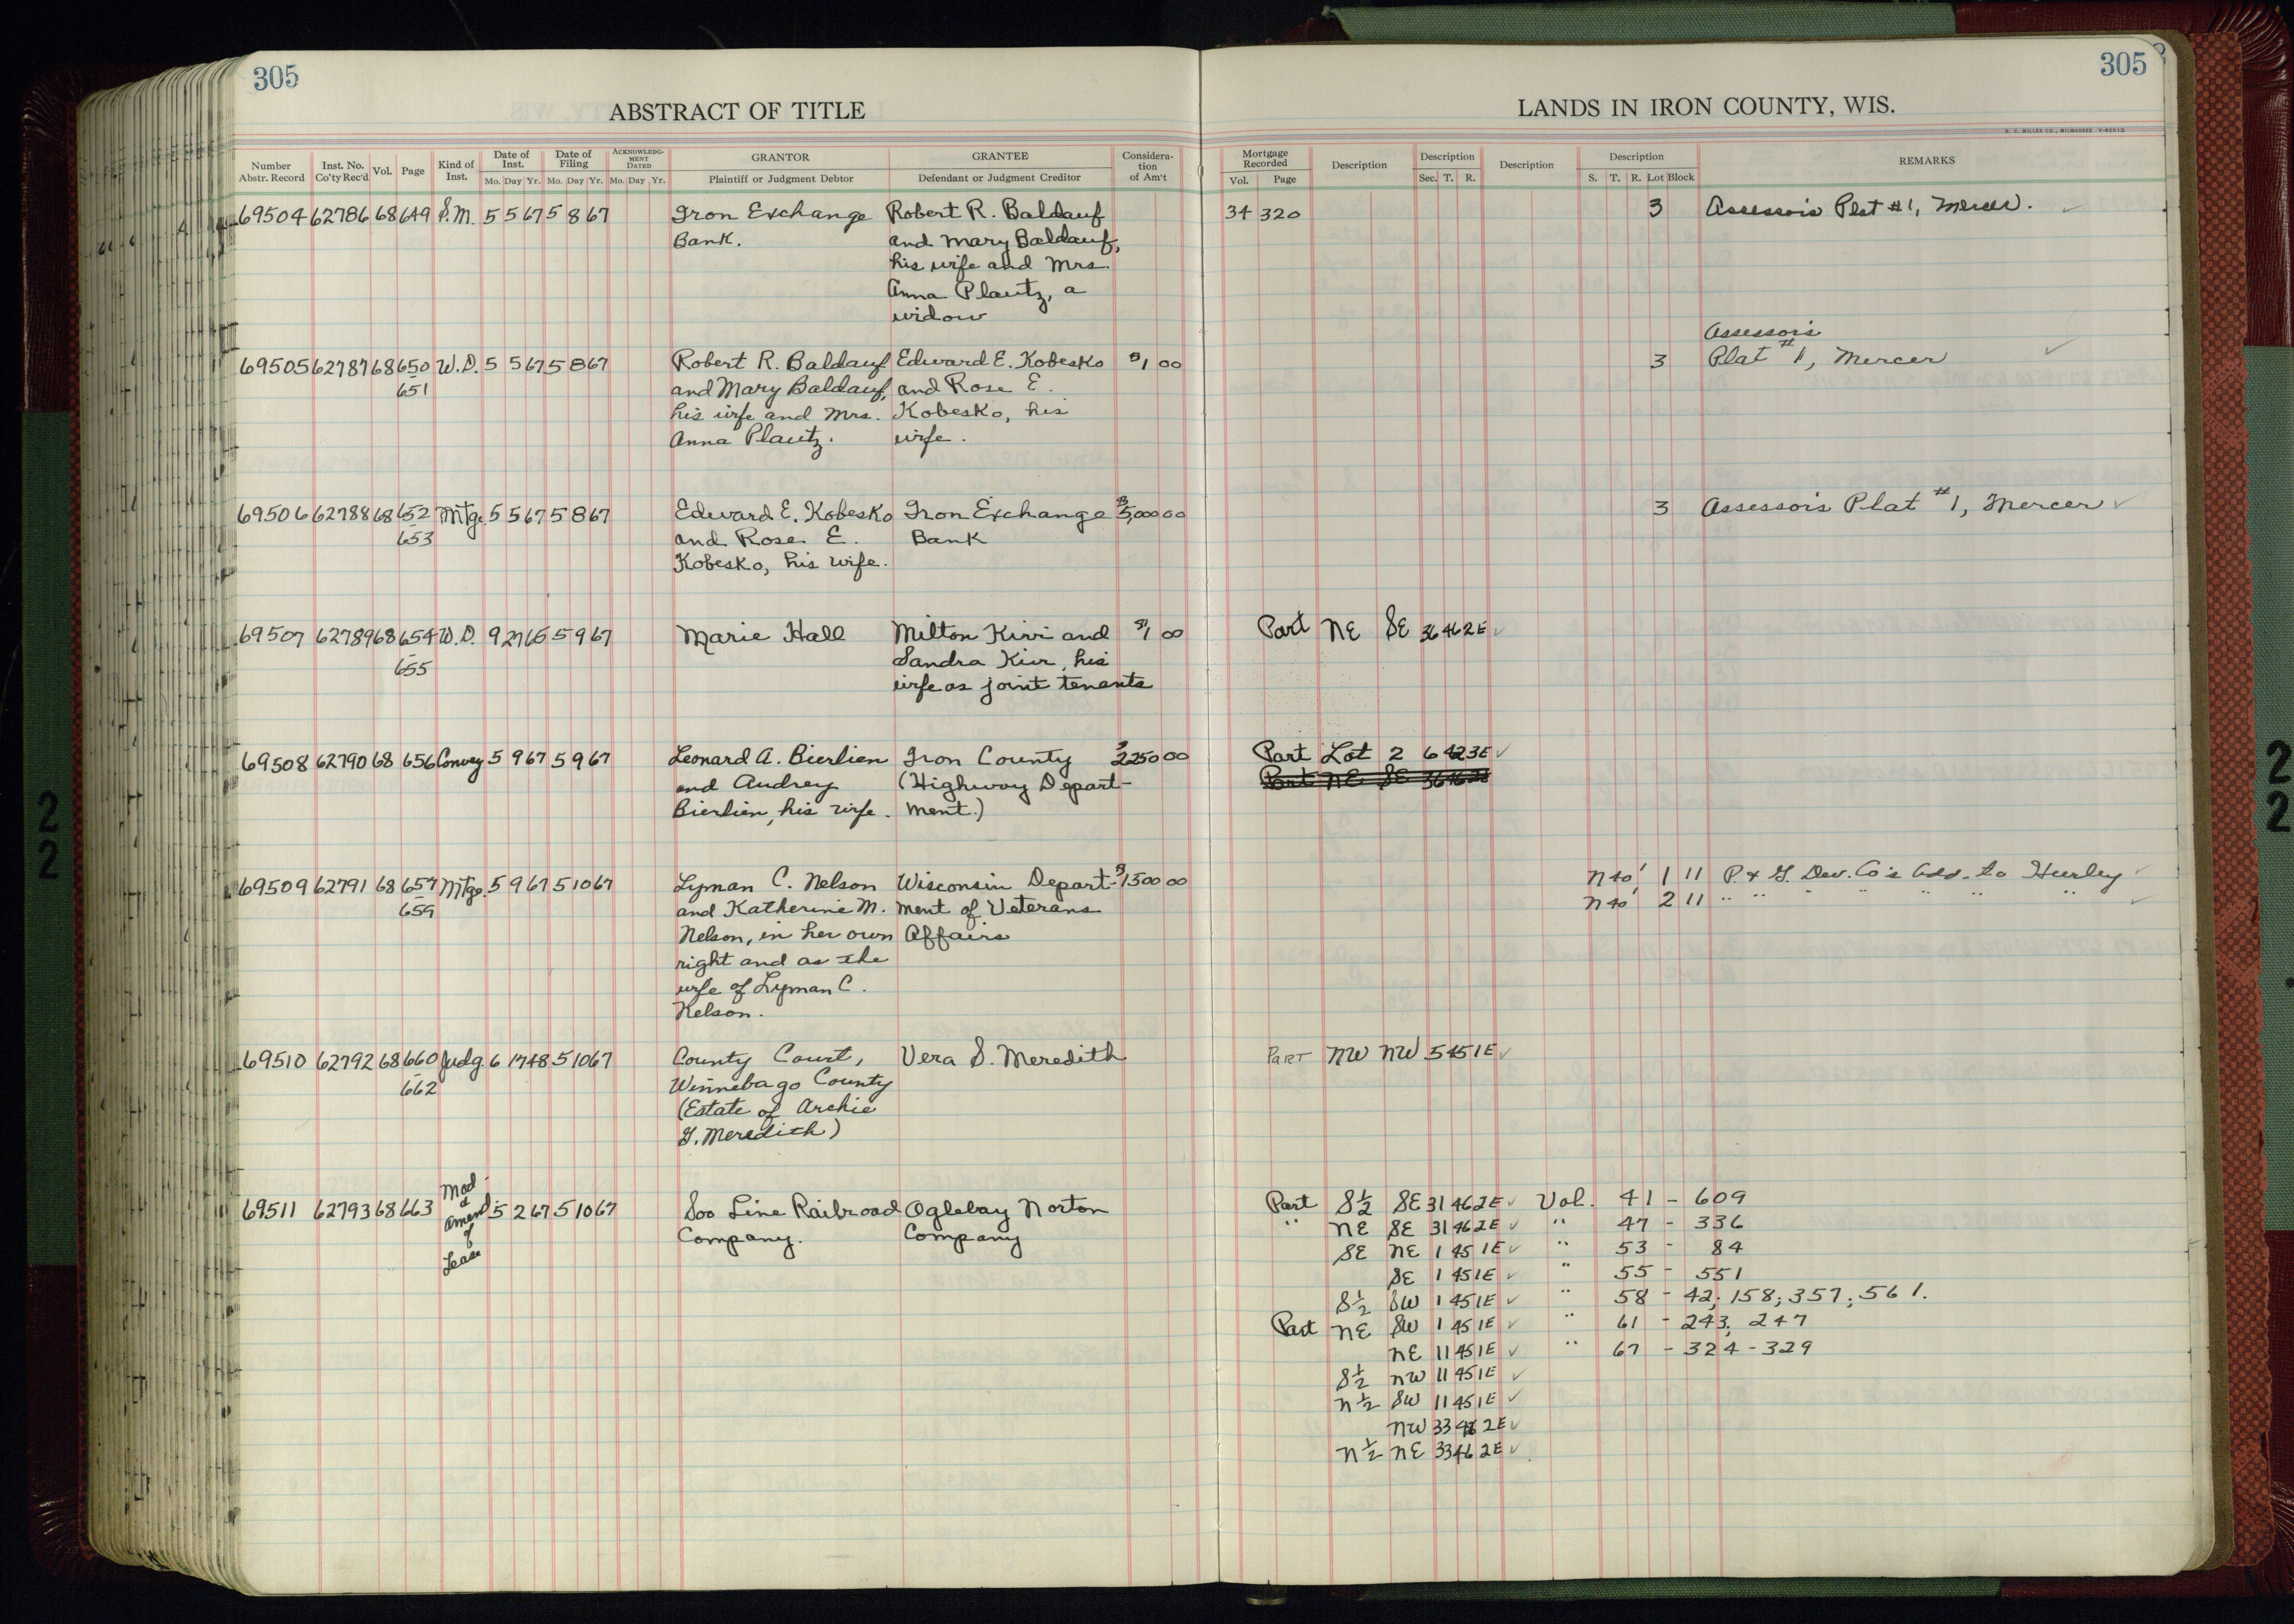 305
305
ABSTRACT OF TITLE
LANDS IN IRON COUNTY, WIS.
H. C. MILLER CO., MILWAUKEE
Number Abstr. Record | Inst. No. Co'ty Rec'd | Vol. | Page | Kind of Inst. | Date of Inst. Mo. Day Yr. | Date of Filing Mo. Day Yr. | ACKNOWLEDGMENT DATED Mo. Day Yr. | GRANTOR Plaintiff or Judgment Debtor | GRANTEE Defendant or Judgment Creditor | Considera-tion of Am't | Mortgage Recorded Vol. Page | Description | Description Sec. T. R. | Description | Description S. T. R. Lot Block | REMARKS
69504 62786 68 649 S.M. 5 5 67 5 8 67 Iron Exchange Robert R. Baldauf 34 320 3 Assessor's Plat #1, Mercer.
Bank. and Mary Baldauf,
his wife and Mrs.
Anna Plautz, a
widow
Assessor's
69505 62787 68 650 W.D. 5 5 67 5 8 67 Robert R. Baldauf Edward E. Kobesko $1 00 3 Plat #1, Mercer
- 651 and Mary Baldauf, and Rose E.
his wife and Mrs. Kobesko, his
Anna Plautz. wife.
69506 62788 68 652 Mtge. 5 5 67 5 8 67 Edward E. Kobesko Iron Exchange $5,000 00 3 Assessor's Plat #1, Mercer
- 653 and Rose E. Bank
Kobesko, his wife.
69507 62789 68 654 W.D. 9 27 65 5 9 67 Marie Hall Milton Kivi and $1 00 Part NE SE 36 46 2E
- 655 Sandra Kivi, his
wife as joint tenants
69508 62790 68 656 Convey 5 9 67 5 9 67 Leonard A. Bierlien Iron County $2250 00 Part Lot 2 6 42 3E
and Audrey (Highway Depart- Part NE SE 36 46 2E
Bierlien, his wife. ment.)
69509 62791 68 657 Mtge. 5 9 67 5 10 67 Lyman C. Nelson Wisconsin Depart- $1500 00 N40' 1 11 P. & G. Dev. Co's Add. to Hurley
- 659 and Katherine M. ment of Veterans N40' 2 11 " " " " " " "
Nelson, in her own Affairs
right and as the
wife of Lyman C.
Nelson.
69510 62792 68 660 Judg. 6 17 48 5 10 67 County Court, Vera S. Meredith PART NW NW 5 45 1E
- 662 Winnebago County
(Estate of Archie
G. Meredith)
69511 62793 68 663 Mod. & Amend. of Lease 5 2 67 5 10 67 Soo Line Railroad Oglebay Norton Part S½ SE 31 46 2E Vol. 41 - 609
Company. Company " NE SE 31 46 2E " 47 - 336
SE NE 1 45 1E " 53 - 84
SE 1 45 1E " 55 - 551
S½ SW 1 45 1E " 58 - 42; 158; 357; 561.
Part NE SW 1 45 1E " 61 - 243; 247
NE 11 45 1E " 67 - 324 - 329
S½ NW 11 45 1E
N½ SW 11 45 1E
NW 33 46 2E
N½ NE 33 46 2E
22
22